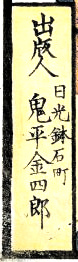 出版人
日光鉢石町
鬼平金四郎